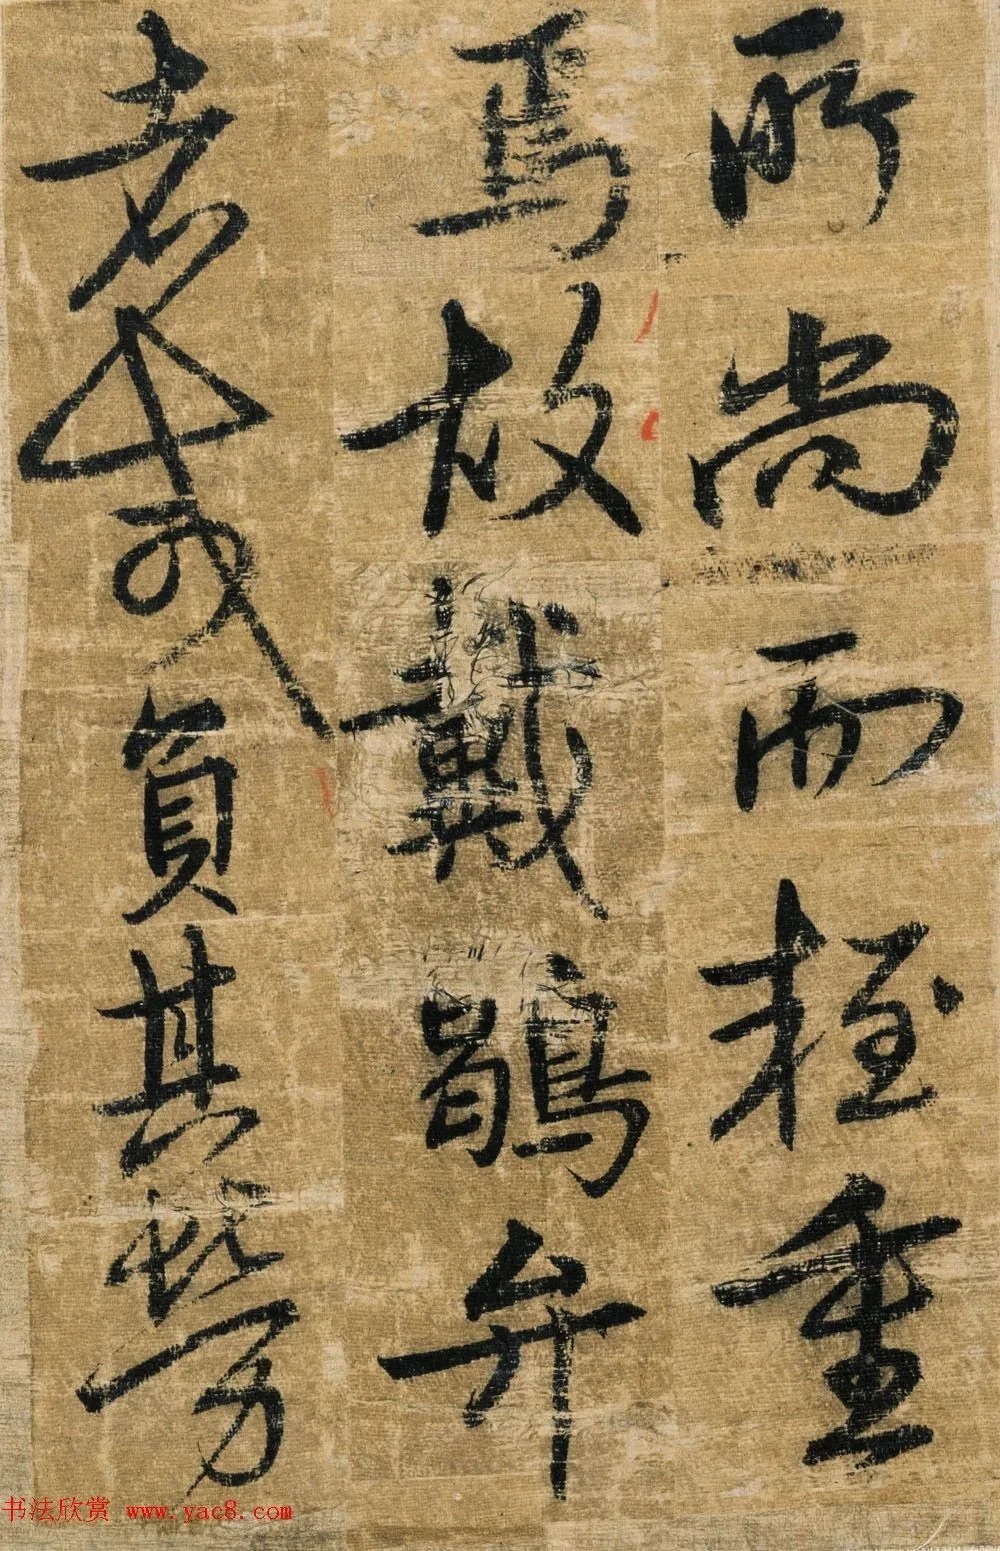 所尚而輕重
焉故戴鶡弁
者不可負其勢
书法欣赏 www.yac8.com